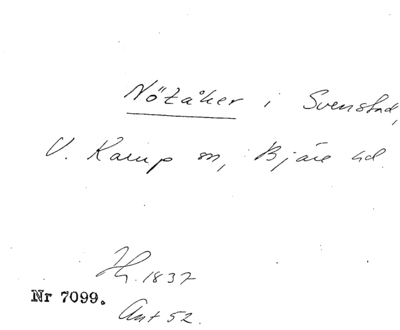 Nötåker i Svenstad,
V. Karup sn, Bjäre hd.
Hy. 1837
Nr 7099.
Ant 52.